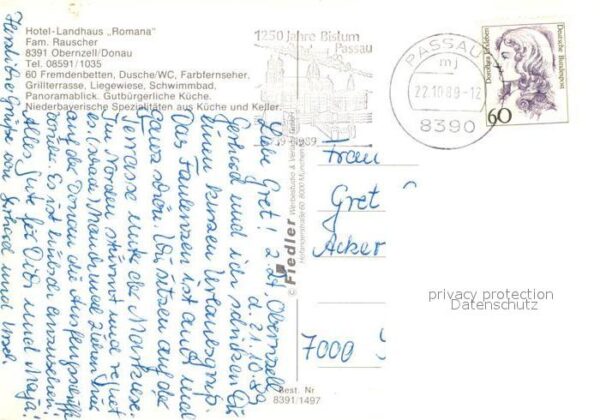 Hotel-Landhaus „Romana"
Fam. Rauscher
8391 Obernzell/Donau
Tel. 08591/1035
60 Fremdenbetten, Dusche/WC, Farbfernseher.
Grillterrasse, Liegewiese, Schwimmbad,
Panoramablick. Gutbürgerliche Küche.
Niederbayerische Spezialitäten aus Küche und Keller.
1250 Jahre Bistum
Passau
1989
PASSAU
mj
22.10.89-12
8390
Dorothea Erxleben
Deutsche Bundespost
60
z. Zt. Obernzell
d. 21.10.89
Liebe Gret!
Gerhard und ich schicken Dir
einen kurzen Urlaubsgruß.
Das Faulenzen ist auch mal
ganz schön. Wir sitzen auf der
Terrasse unter der Markise.
Im Norden stürmt und regnet
es (schade). Manchmal ziehen
auf der Donau die Ausflugsschiffe
vorbei. Es ist hübsch anzusehen!
Alles Gute für Dich und
Herzliche Grüße von Gerhard und
© Fiedler Werbestudio & Verlag GmbH
8000 München
Frau
Gret
Acker
7000 S
privacy protection
Datenschutz
Best. Nr
8391/1497